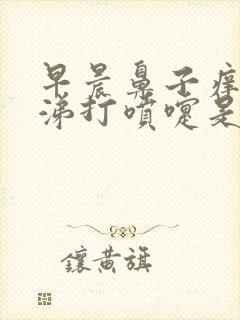 早晨鼻子痒
涕打喷嚏是
鑲黄旗